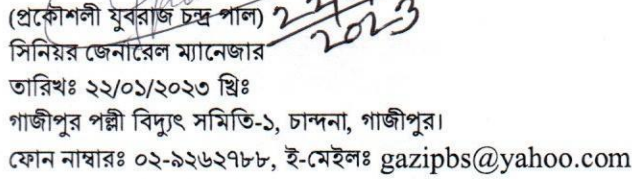 (প্রকৌশলী যুবরাজ চন্দ্র পাল)
2023
সিনিয়র জেনারেল ম্যানেজার
তারিখঃ ২২/০১/২০২৩ খ্রিঃ
গাজীপুর পল্লী বিদ্যুৎ সমিতি-১, চান্দনা, গাজীপুর।
ফোন নাম্বারঃ ০২-৯২৬২৭৮৮, ই-মেইলঃ gazipbs@yahoo.com